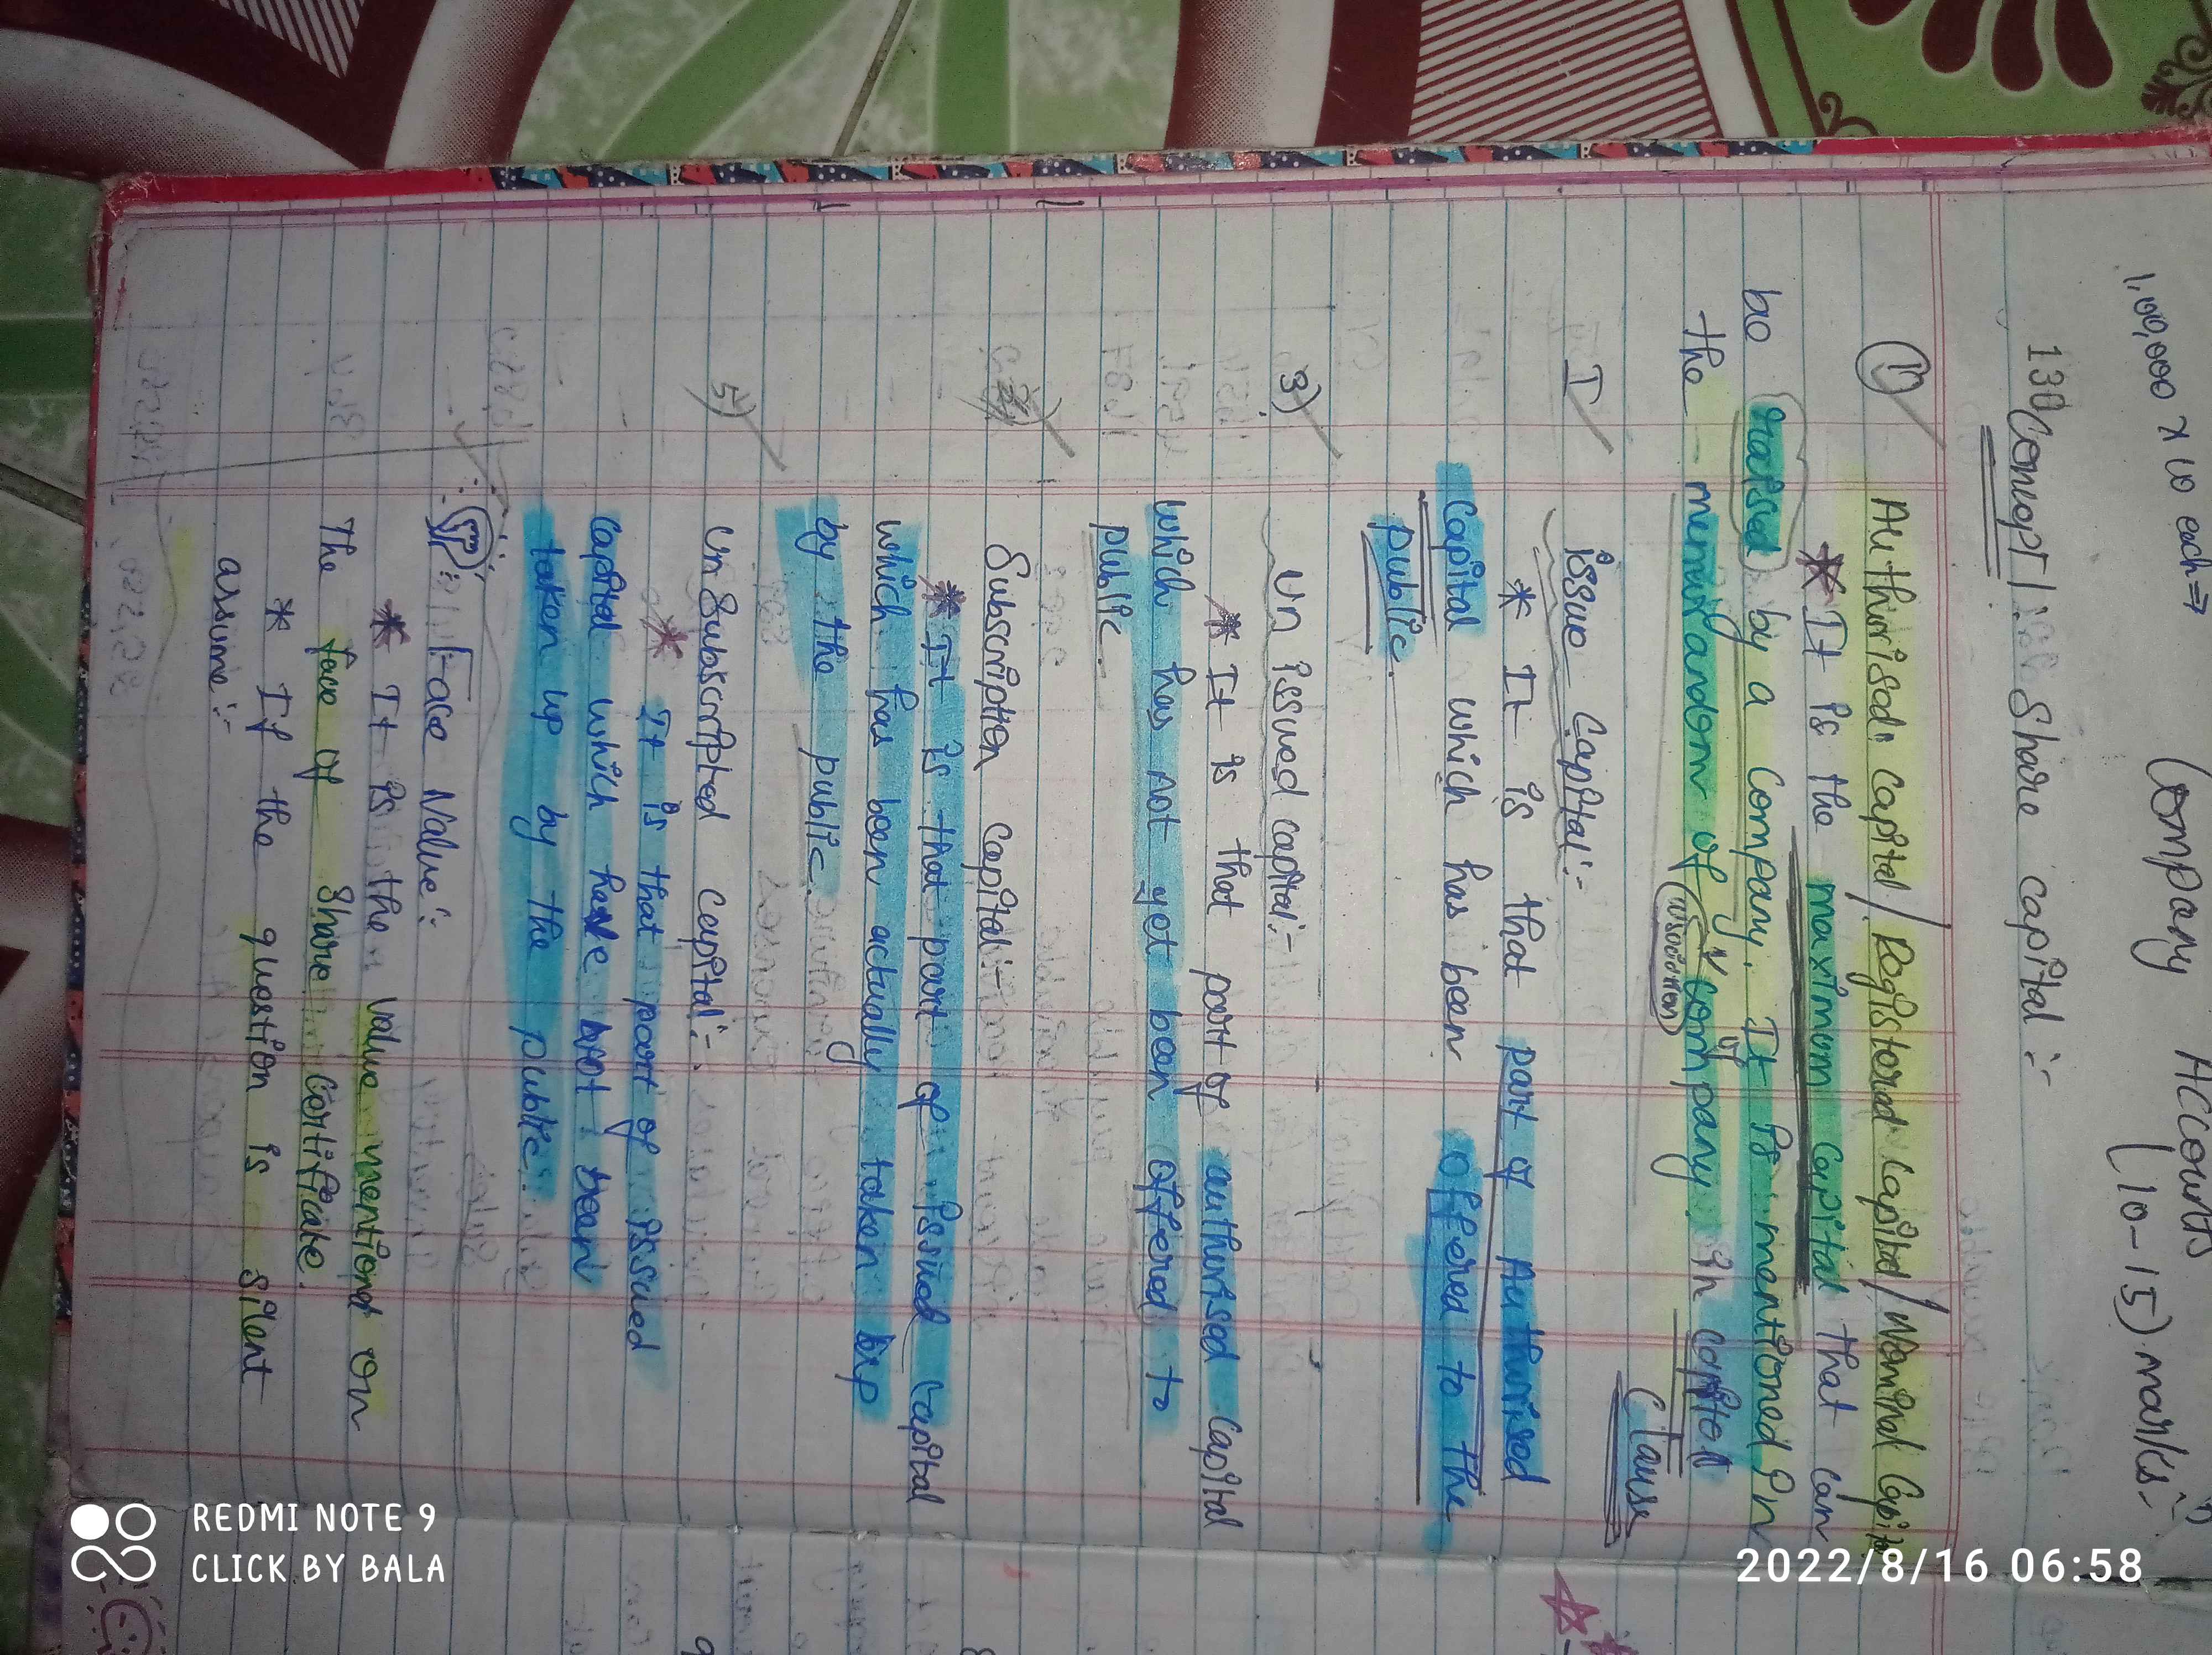 Company Accounts
(10-15) marks:-
1,00,000 x 10 each =>
Concept 1: Share capital :-
1) Authorised Capital / Registered Capital / Nominal Capital
* It is the maximum Capital that can
be raised by a Company. It is mentioned in
the memorandom of company in Capital
Clause
I) issue Capital:-
* It is that part of Authorised
Capital which has been offered to the
public.
3) Un issued capital:-
* It is that part of authorised Capital
which has not yet been offered to
public.
Subscription Capital:-
* It is that part of issued Capital
which has been actually taken up
by the public.
5) Un Subscripted Capital:-
* It is that part of issued
Capital which have not been
taken up by the public.
Face Value:-
* It is the value mentiond on
The face of Share Certificate.
* If the question is silent
assume:-
REDMI NOTE 9
CLICK BY BALA
2022/8/16 06:58